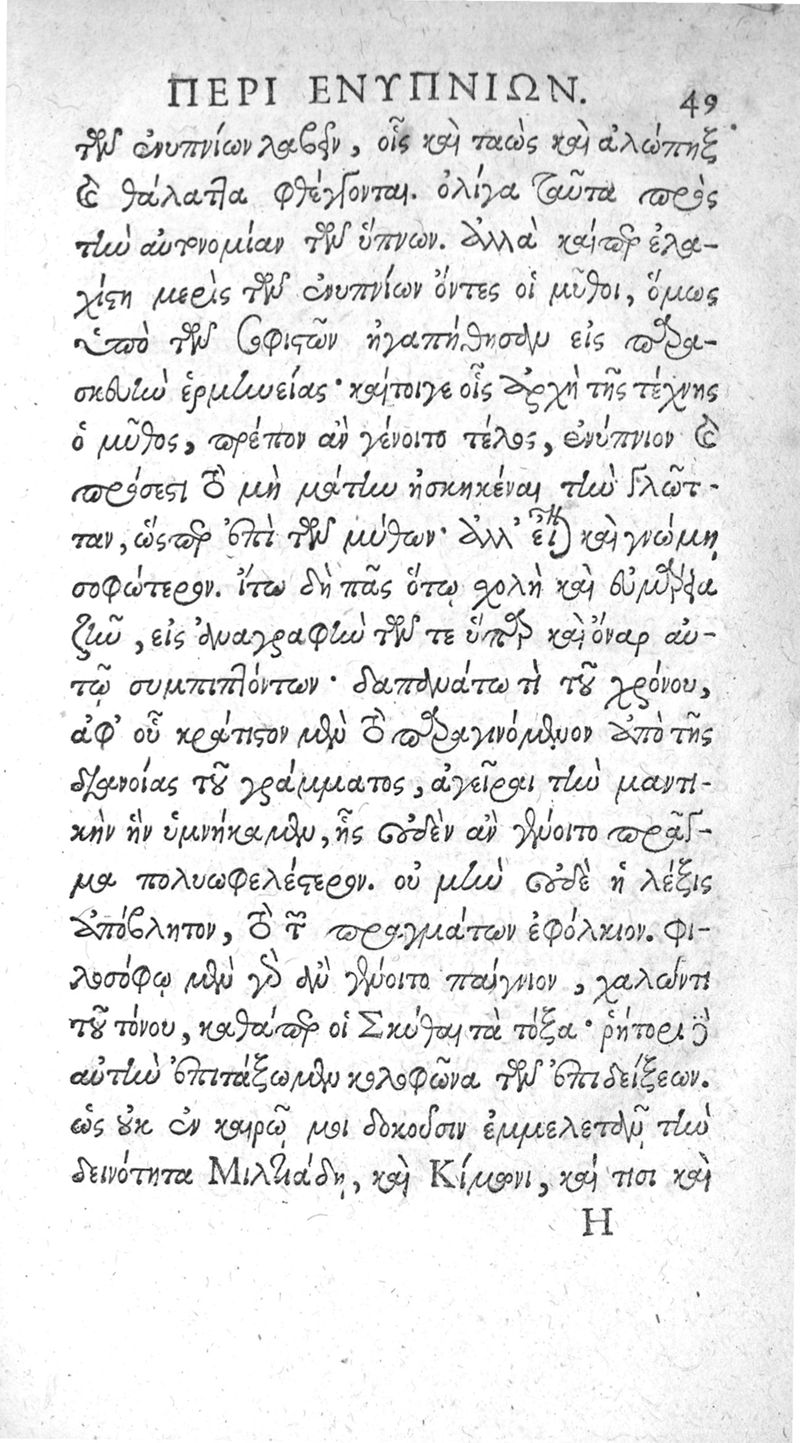 ΠΕΡΙ ΕΝΥΠΝΙΩΝ. 49
τῶν ἐνυπνίων λαβεῖν, οἷς καὶ ταὼς καὶ ἀλώπηξ
καὶ θάλαττα φθέγγονται. ὀλίγα ταῦτα πρὸς
τὴν αὐτονομίαν τῶν ὕπνων. ἀλλὰ καίπερ ἐλα-
χίστη μερὶς τῶν ἐνυπνίων ὄντες οἱ μῦθοι, ὅμως
ὑπὸ τῶν σοφιστῶν ἠγαπήθησαν εἰς παρα-
σκευὴν ἑρμηνείας· καίτοιγε οἷς ἀρχὴ τῆς τέχνης
ὁ μῦθος, πρέπον ἂν γένοιτο τέλος, ἐνύπνιον καὶ
πρόσεστι τὸ μὴ μάτην ἠσκηκέναι τὴν γλῶτ-
ταν, ὥσπερ ἐπὶ τῶν μύθων· ἀλλ' εἶναι καὶ γνώμῃ
σοφώτερον. ἴτω δὴ πᾶς ὅτῳ σχολὴ καὶ εὐμάρεια
ζῆν, εἰς ἀναγραφὴν τῶν τε ὕπαρ καὶ ὄναρ αὐ-
τῷ συμπιπτόντων· δαπανάτω τὶ τοῦ χρόνου,
ἀφ' οὗ κράτιστον μὲν τὸ παραγινόμενον ἀπὸ τῆς
διανοίας τοῦ γράμματος, ἀγεῖραι τὴν μαντι-
κὴν ἣν ὑμνήκαμεν, ἧς οὐδὲν ἂν γένοιτο πρᾶγ-
μα πολυωφελέστερον. οὐ μὴν οὐδὲ ἡ λέξις
ἀπόβλητον, τὸ τῶν πραγμάτων ἐφόλκιον. φι-
λοσόφῳ μὲν γὰρ ἂν γένοιτο παίγνιον, χαλῶντι
τοῦ τόνου, καθάπερ οἱ Σκύθαι τὰ τόξα· ῥήτορι δὲ
αὐτὴν ἐπιτάξωμεν κολοφῶνα τῶν ἐπιδείξεων.
ὡς οὐκ ἐν καιρῷ μοι δοκοῦσιν ἐμμελετᾶν τὴν
δεινότητα Μιλτιάδῃ, καὶ Κίμωνι, καί τισι καὶ
Η